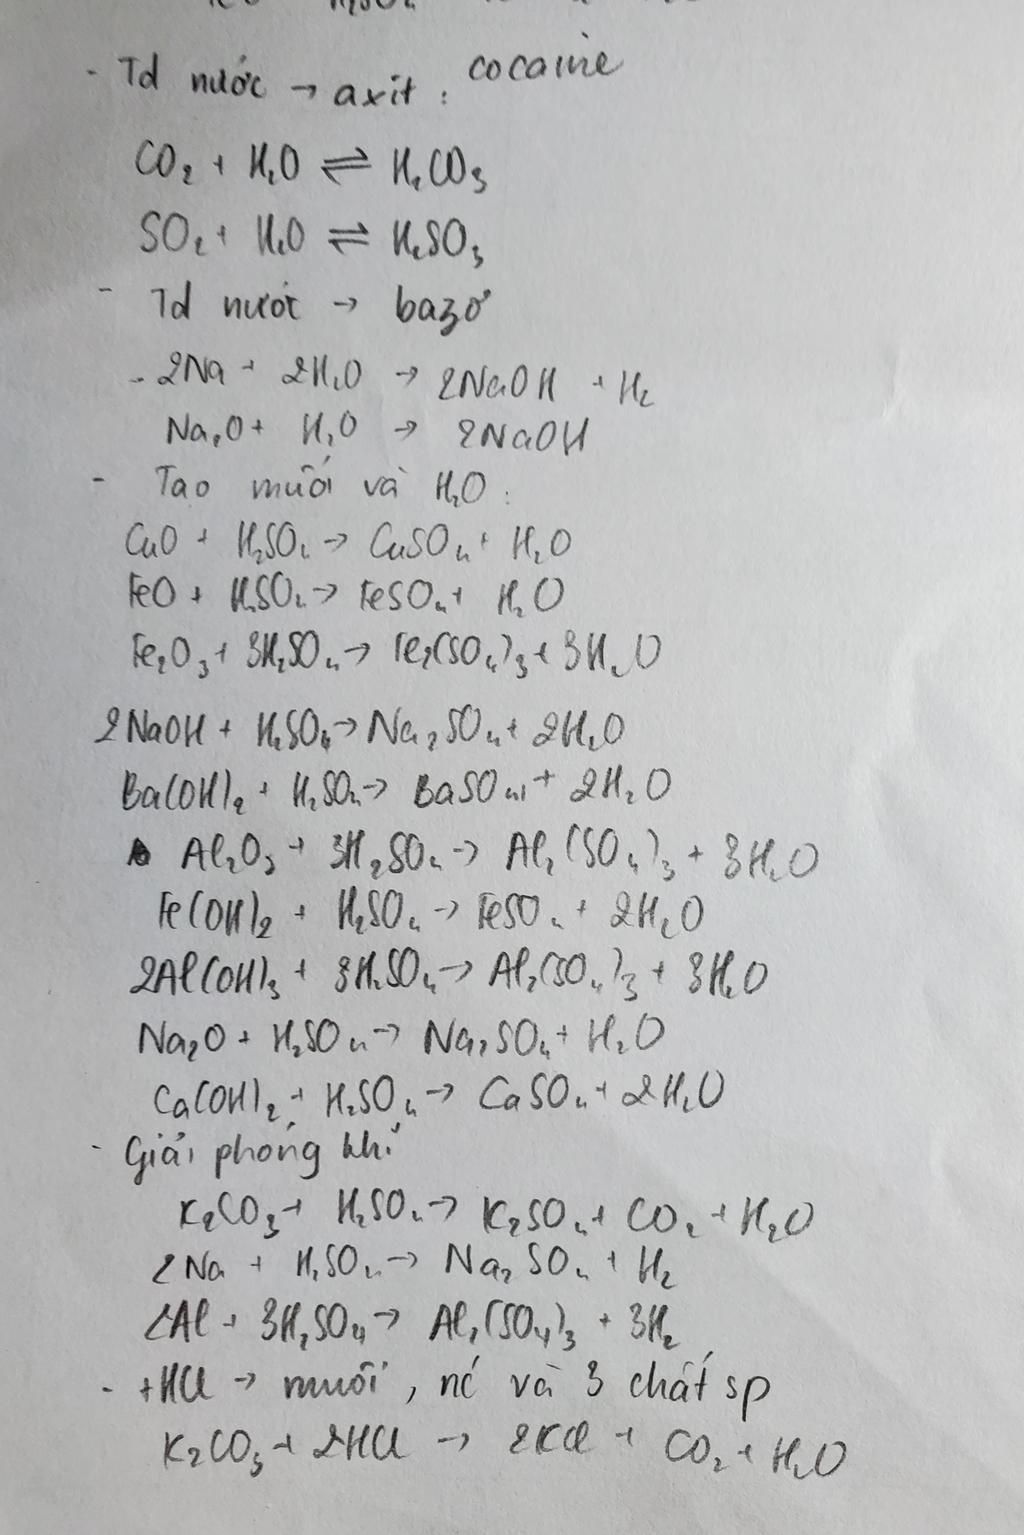 - Td nước → axit : cocaine
CO₂ + H₂O ⇌ H₂CO₃
SO₂ + H₂O ⇌ H₂SO₃
- Td nước → bazơ
- 2Na + 2H₂O → 2NaOH + H₂
Na₂O + H₂O → 2NaOH
- Tạo muối và H₂O :
CuO + H₂SO₄ → CuSO₄ + H₂O
FeO + H₂SO₄ → FeSO₄ + H₂O
Fe₂O₃ + 3H₂SO₄ → Fe₂(SO₄)₃ + 3H₂O
2NaOH + H₂SO₄ → Na₂SO₄ + 2H₂O
Ba(OH)₂ + H₂SO₄ → BaSO₄ + 2H₂O
Al₂O₃ + 3H₂SO₄ → Al₂(SO₄)₃ + 3H₂O
Fe(OH)₂ + H₂SO₄ → FeSO₄ + 2H₂O
2Al(OH)₃ + 3H₂SO₄ → Al₂(SO₄)₃ + 3H₂O
Na₂O + H₂SO₄ → Na₂SO₄ + H₂O
Ca(OH)₂ + H₂SO₄ → CaSO₄ + 2H₂O
- Giải phóng khí
K₂CO₃ + H₂SO₄ → K₂SO₄ + CO₂ + H₂O
2Na + H₂SO₄ → Na₂SO₄ + H₂
2Al + 3H₂SO₄ → Al₂(SO₄)₃ + 3H₂
- +HCl → muối, nc và 3 chất sp
K₂CO₃ + 2HCl → 2KCl + CO₂ + H₂O